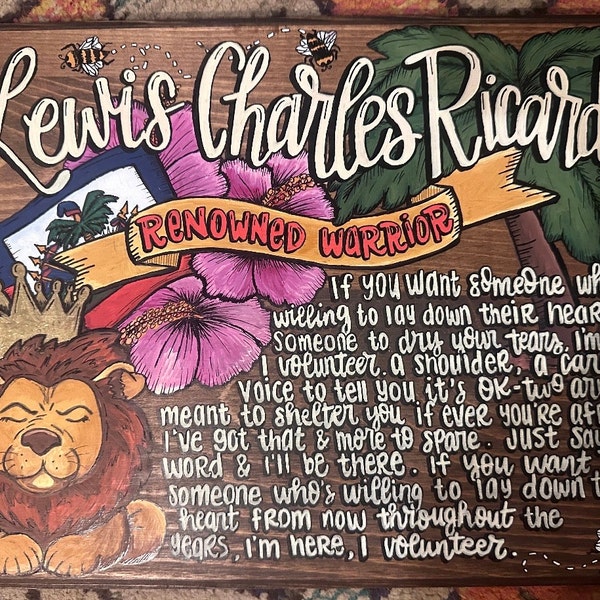 Lewis Charles Ricard
RENOWNED WARRIOR
IF YOU WANT SOMEONE
willing to lay down their
someone to dry your tears, I'm
I volunteer. a shoulder, a
voice to tell you it's OK-two
meant to shelter you if ever you're
I've got that & more to spare. JUST
word & i'll be there. if you want
someone who's willing to lay down
heart from now throughout the
years, i'm here, I volunteer.